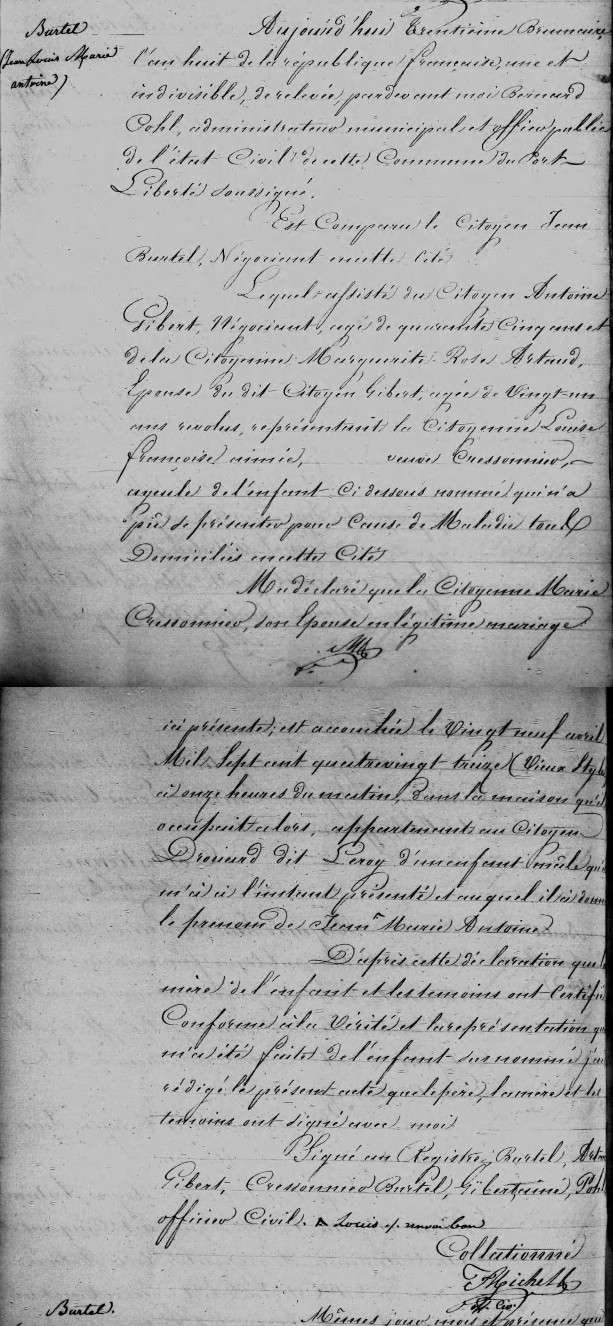 Bartel
(Jean Louis Marie
antoine)
Aujourd'hui Trentième Brumaire
l'an huit de la république française, une et
indivisible, de relevée pardevant moi Bernard
Pohl, administrateur municipal et officier public
de l'état Civil de cette Commune du Port-
Liberté soussigné.
Est Comparu le Citoyen Jean
Bartel, Négociant en cette Cité
Lequel assisté du Citoyen Antoine
Gibert, Négociant, agé de quarante Cinq ans et
de la Citoyenne Marguerite Rose Artaud,
Epouse du dit Citoyen Gibert, agée de Vingt-un
ans revolus, représentant la Citoyenne Louise
françoise aimée, veuve Cressonnier,
ayeule de l'enfant Ci dessous nommé qui n'a
pû se présenter pour Cause de Maladie tous
Domiciliés en cette Cité
M'a déclaré que la Citoyenne Marie
Cressonnier, son Epouse en légitime mariage
ici présente, est accouchée le Vingt neuf avril
Mil Sept cent quatrevingt treize (Vieux Style
à onze heures du matin, Dans la maison qu'il
occupait alors, appartenant au Citoyen
Drouard dit Leroy d'un enfant mâle qu'il
m'a à l'instant présenté et auquel il a donné
le prenom de Jean Marie Antoine
D'après cette déclaration que la
mère de l'enfant et les temoins ont Certifié
Conforme à la Vérité et la représentation qui
m'a été faite de l'enfant sus nommé j'ai
rédigé le présent acte que le père, la mère et les
temoins ont signé avec moi
Signé au Registre Bartel,
Gibert, Cressonnier Bartel, Gibert,
officier Civil. Louis renvoi bon
Collationné
Bartel.
Mêmes jour mois et présence que